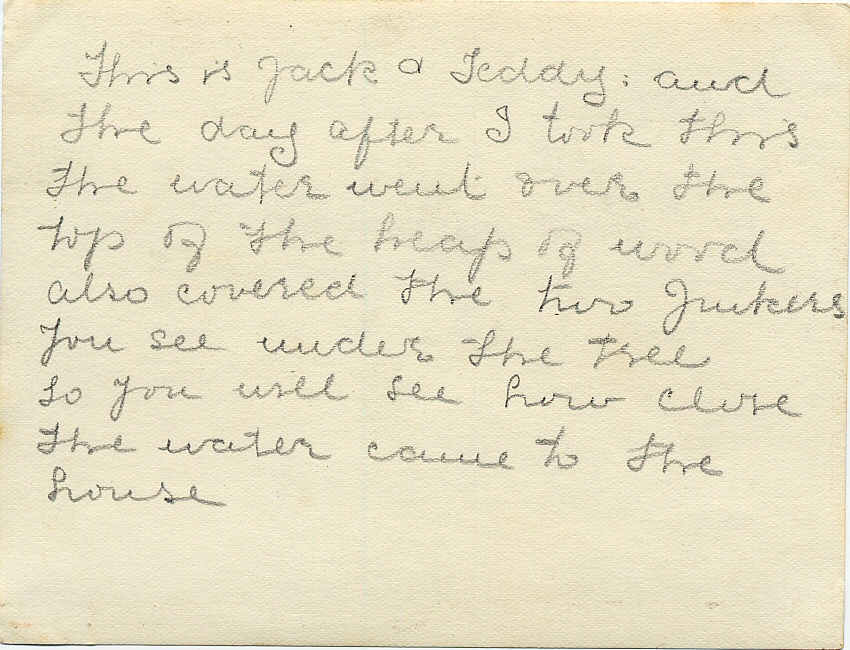 This is Jack & Teddy: and
the day after I took this
the water went over the
top of the heap of wood
also covered the two Junkers
you see under the tree
so you will see how close
the water came to the
house